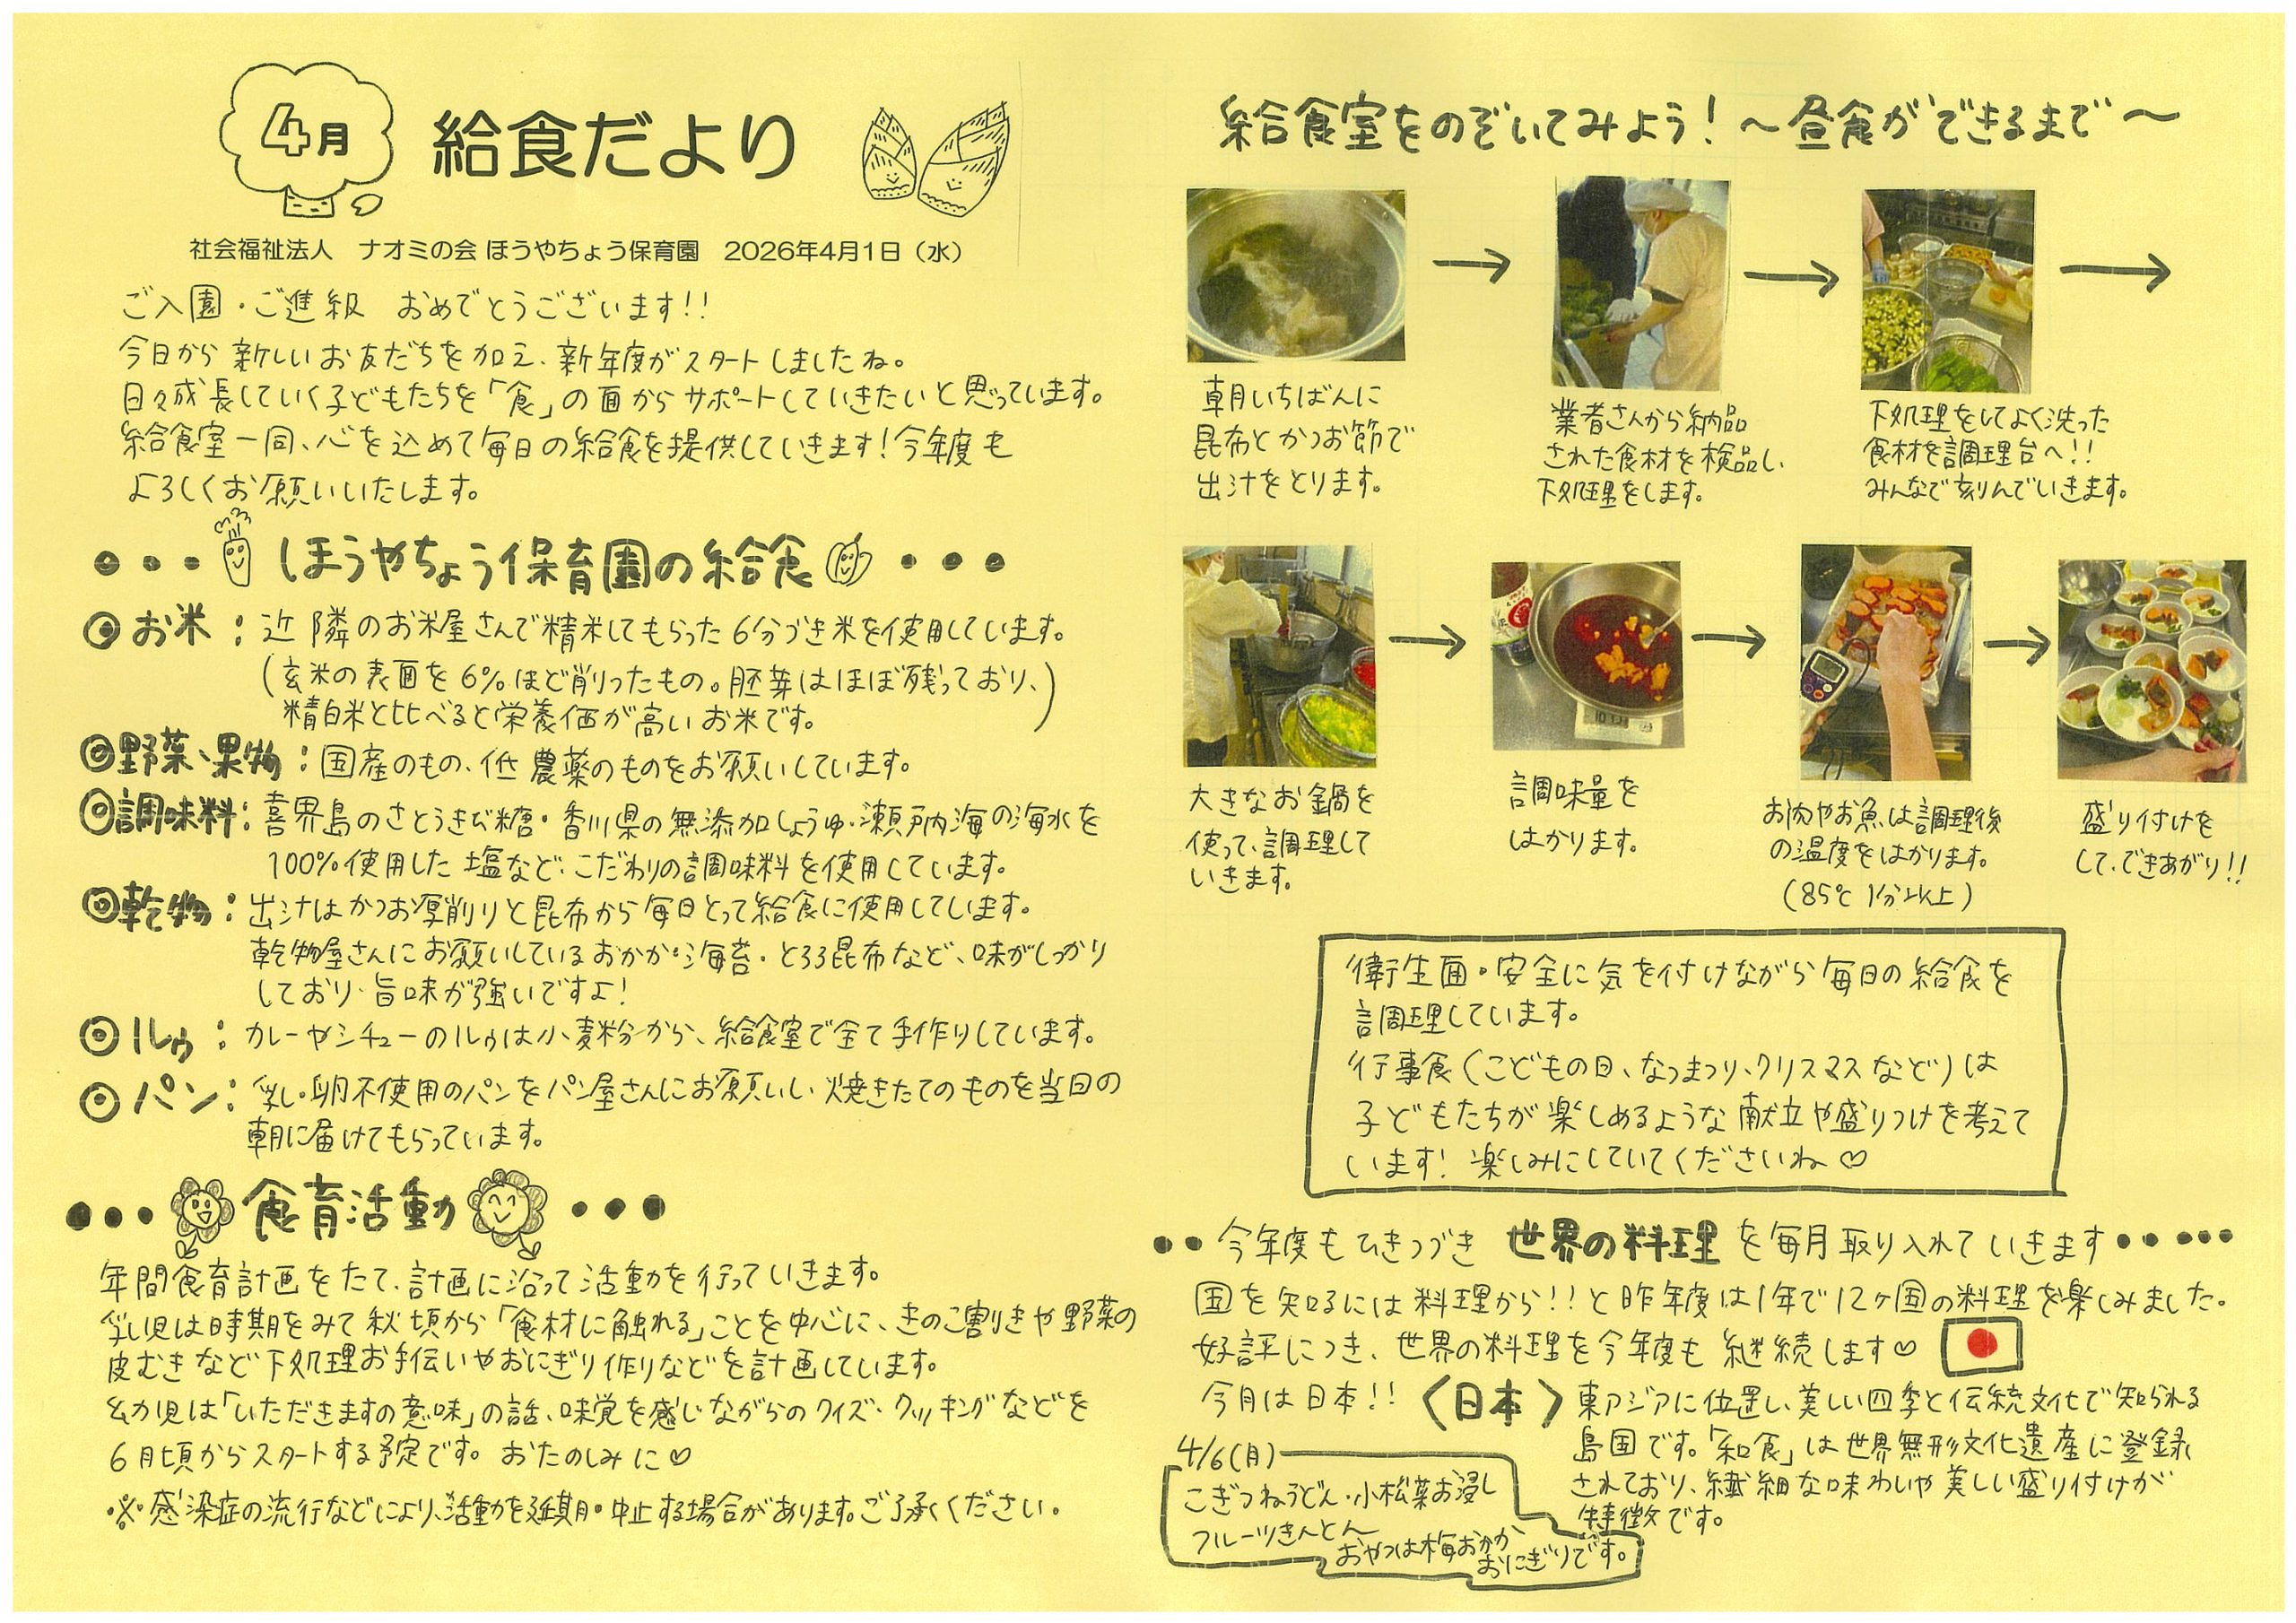 4月
給食だより
社会福祉法人　ナオミの会 ほうやちょう保育園　2026年4月1日（水）
ご入園・ご進級　おめでとうございます!!
今日から新しいお友だちを加え、新年度がスタートしましたね。
日々成長していく子どもたちを「食」の面からサポートしていきたいと思っています。
給食室一同、心を込めて毎日の給食を提供していきます!今年度も
よろしくお願いいたします。
ほうやちょう保育園の給食
◎お米：近隣のお米屋さんで精米してもらった6分づき米を使用しています。
(玄米の表面を6%ほど削ったもの。胚芽はほぼ残っており、
精白米と比べると栄養価が高いお米です。)
◎野菜、果物：国産のもの、低農薬のものをお願いしています。
◎調味料：喜界島のさとうきび糖・香川県の無添加しょうゆ・瀬戸内海の海水を
100%使用した塩など、こだわりの調味料を使用しています。
◎乾物：出汁はかつお厚削りと昆布から毎日とって給食に使用しています。
乾物屋さんにお願いしているおかか・海苔・とろろ昆布など、味がしっかり
しており、旨味が強いですよ!
◎ルゥ：カレーやシチューのルゥは小麦粉から、給食室で全て手作りしています。
◎パン：乳・卵不使用のパンをパン屋さんにお願いし、焼きたてのものを当日の
朝に届けてもらっています。
食育活動
年間食育計画をたて、計画に沿って活動を行っていきます。
乳児は時期をみて秋頃から「食材に触れる」ことを中心に、きのこ割りきや野菜の
皮むきなど下処理お手伝いやおにぎり作りなどを計画しています。
幼児は「いただきますの意味」の話、味覚を感じながらのクイズ、クッキングなどを
6月頃からスタートする予定です。おたのしみに♡
※感染症の流行などにより、活動を延期・中止する場合があります。ご了承ください。
給食室をのぞいてみよう!～昼食ができるまで～
朝いちばんに
昆布とかつお節で
出汁をとります。
業者さんから納品
された食材を検品し、
下処理をします。
下処理をしてよく洗った
食材を調理台へ!!
みんなで刻んでいきます。
大きなお鍋を
使って、調理して
いきます。
調味量を
はかります。
お肉やお魚は調理後
の温度をはかります。
(85℃ 1分以上)
盛り付けを
して、できあがり!!
衛生面・安全に気を付けながら毎日の給食を
調理しています。
行事食(こどもの日、なつまつり、クリスマスなど)は
子どもたちが楽しめるような献立や盛りつけを考えて
います!楽しみにしていてくださいね♡
今年度もひきつづき 世界の料理 を毎月取り入れていきます
国を知るには料理から!!と昨年度は1年で12ヶ国の料理を楽しみました。
好評につき、世界の料理を今年度も継続します♡
今月は日本!!
〈日本〉東アジアに位置し、美しい四季と伝統文化で知られる
島国です。「和食」は世界無形文化遺産に登録
されており、繊細な味わいや美しい盛り付けが
特徴です。
4/6(月)
こぎつねうどん・小松菜お浸し
フルーツきんとん
おやつは梅おかか
おにぎりです。